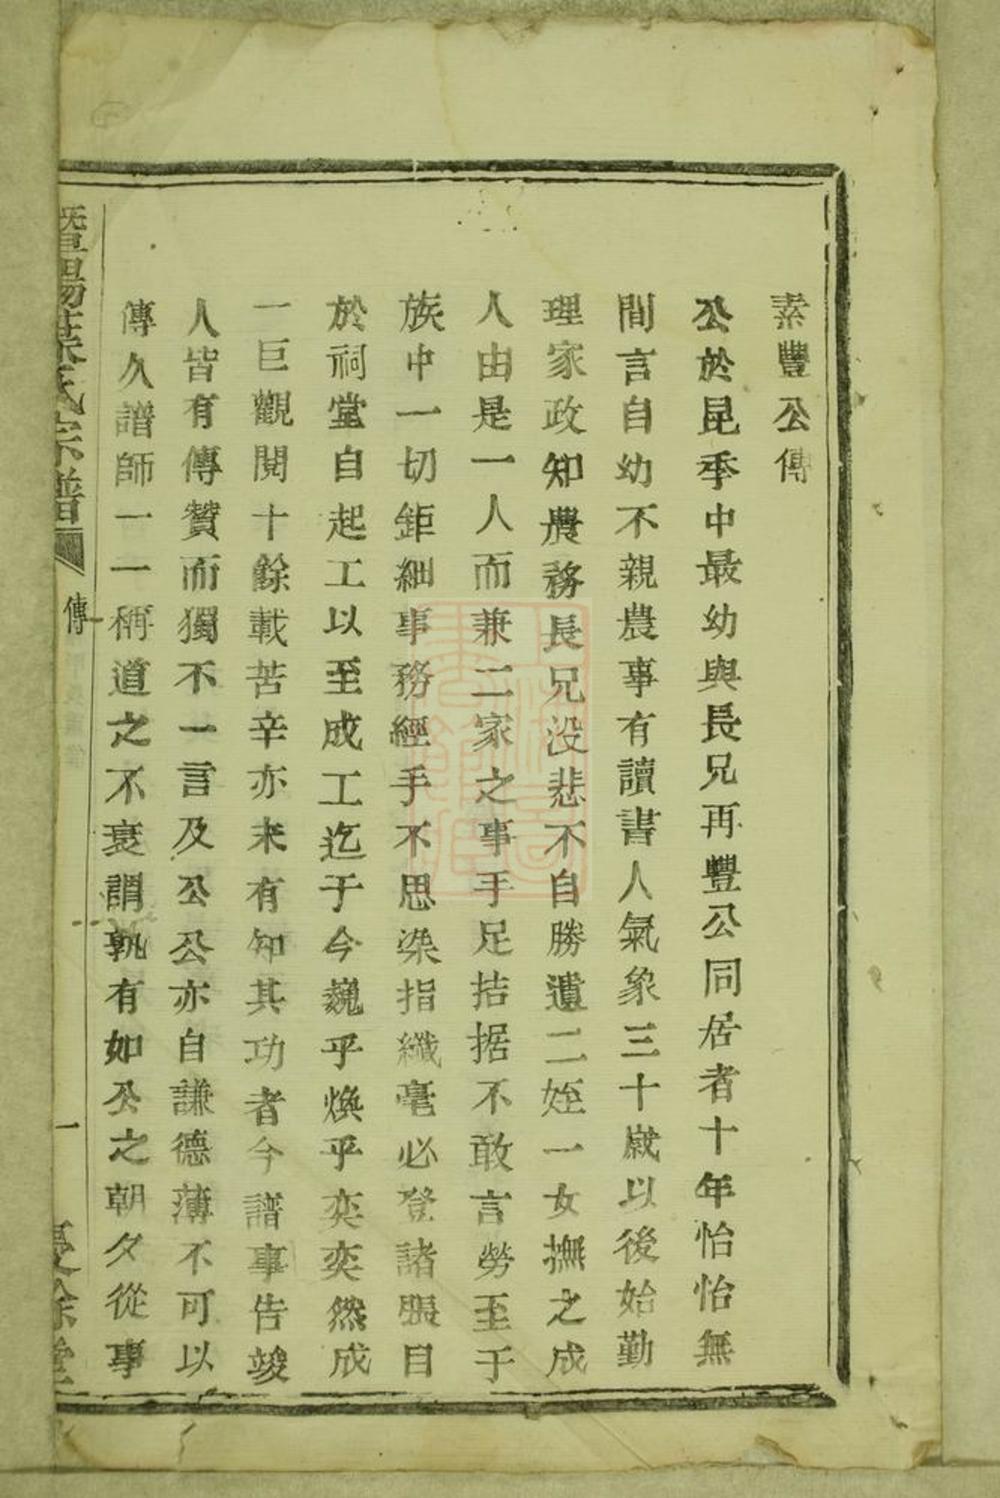 素豐公傳
公於昆季中最幼與長兄再豐公同居者十年怡怡無
間言自幼不親農事有讀書人氣象三十歲以後始勤
理家政知農務長兄沒悲不自勝遺二姪一女撫之成
人由是一人而兼二家之事手足拮据不敢言勞至于
族中一切鉅細事務經手不思染指纖毫必登諸賬目
於祠堂自起工以至成工迄于今巍乎煥乎奕奕然成
一巨觀閱十餘載苦辛亦未有知其功者今譜事告竣
人皆有傳贊而獨不一言及公公亦自謙德薄不可以
傳久譜師一一稱道之不衰謂孰有如公之朝夕從事
暨陽葉氏宗譜
傳
一
餘堂